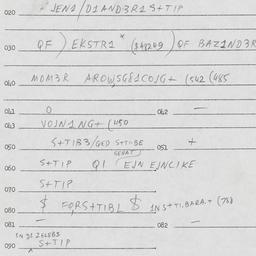 020 JEN1/D1AND3R1S+TIP
030 QF) EKSTR1* ($48209) QF BAZ1ND3R
040 MOM3R AROWSG81COJG+ (542 (485
041 0 042 —
043 VOJN1NG+ (450
050 S+TIB3/GED S+TIBE 051 +
GEHAT)
060 S+TIP Q1 (EJN EJNLIKE
070 S+TIP
080 $ FQRS+TIBL $ 1NS+TI,BARA+ (788
081 — 082 —
090 S+TIP